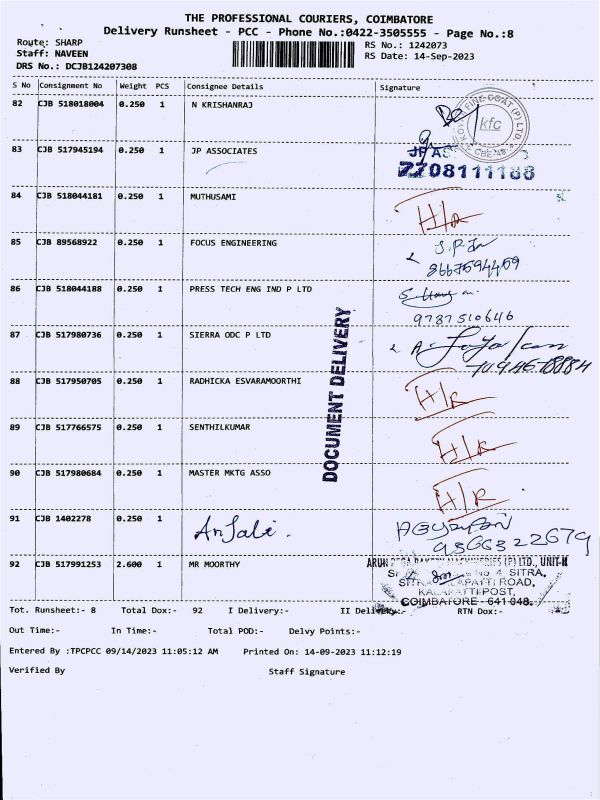 THE PROFESSIONAL COURIERS, COIMBATORE
Delivery Runsheet - PCC - Phone No.:0422-3505555 - Page No.:8
Route: SHARP
Staff: NAVEEN
DRS No.: DCJB124207308
RS No.: 1242073
RS Date: 14-Sep-2023
S No Consignment No Weight PCS Consignee Details Signature
82 CJB 518018004 0.250 1 N KRISHANRAJ
FINE COAT (P) LTD
kfc
83 CJB 517945194 0.250 1 JP ASSOCIATES
7708111188
84 CJB 518044181 0.250 1 MUTHUSAMI H/R
85 CJB 89568922 0.250 1 FOCUS ENGINEERING
86 CJB 518044188 0.250 1 PRESS TECH ENG IND P LTD
9787510646
87 CJB 517980736 0.250 1 SIERRA ODC P LTD
DOCUMENT DELIVERY
88 CJB 517950705 0.250 1 RADHICKA ESVARAMOORTHI H/R
89 CJB 517766575 0.250 1 SENTHILKUMAR H/R
90 CJB 517980684 0.250 1 MASTER MKTG ASSO H/R
91 CJB 1402278 0.250 1 Anjali.
9566322679
92 CJB 517991253 2.600 1 MR MOORTHY
(P) LTD., UNIT-II
SITRA,
ROAD,
POST,
COIMBATORE - 641 048.
Tot. Runsheet:- 8 Total Dox:- 92 I Delivery:- II Delivery:- RTN Dox:-
Out Time:- In Time:- Total POD:- Delvy Points:-
Entered By :TPCPCC 09/14/2023 11:05:12 AM Printed On: 14-09-2023 11:12:19
Verified By Staff Signature